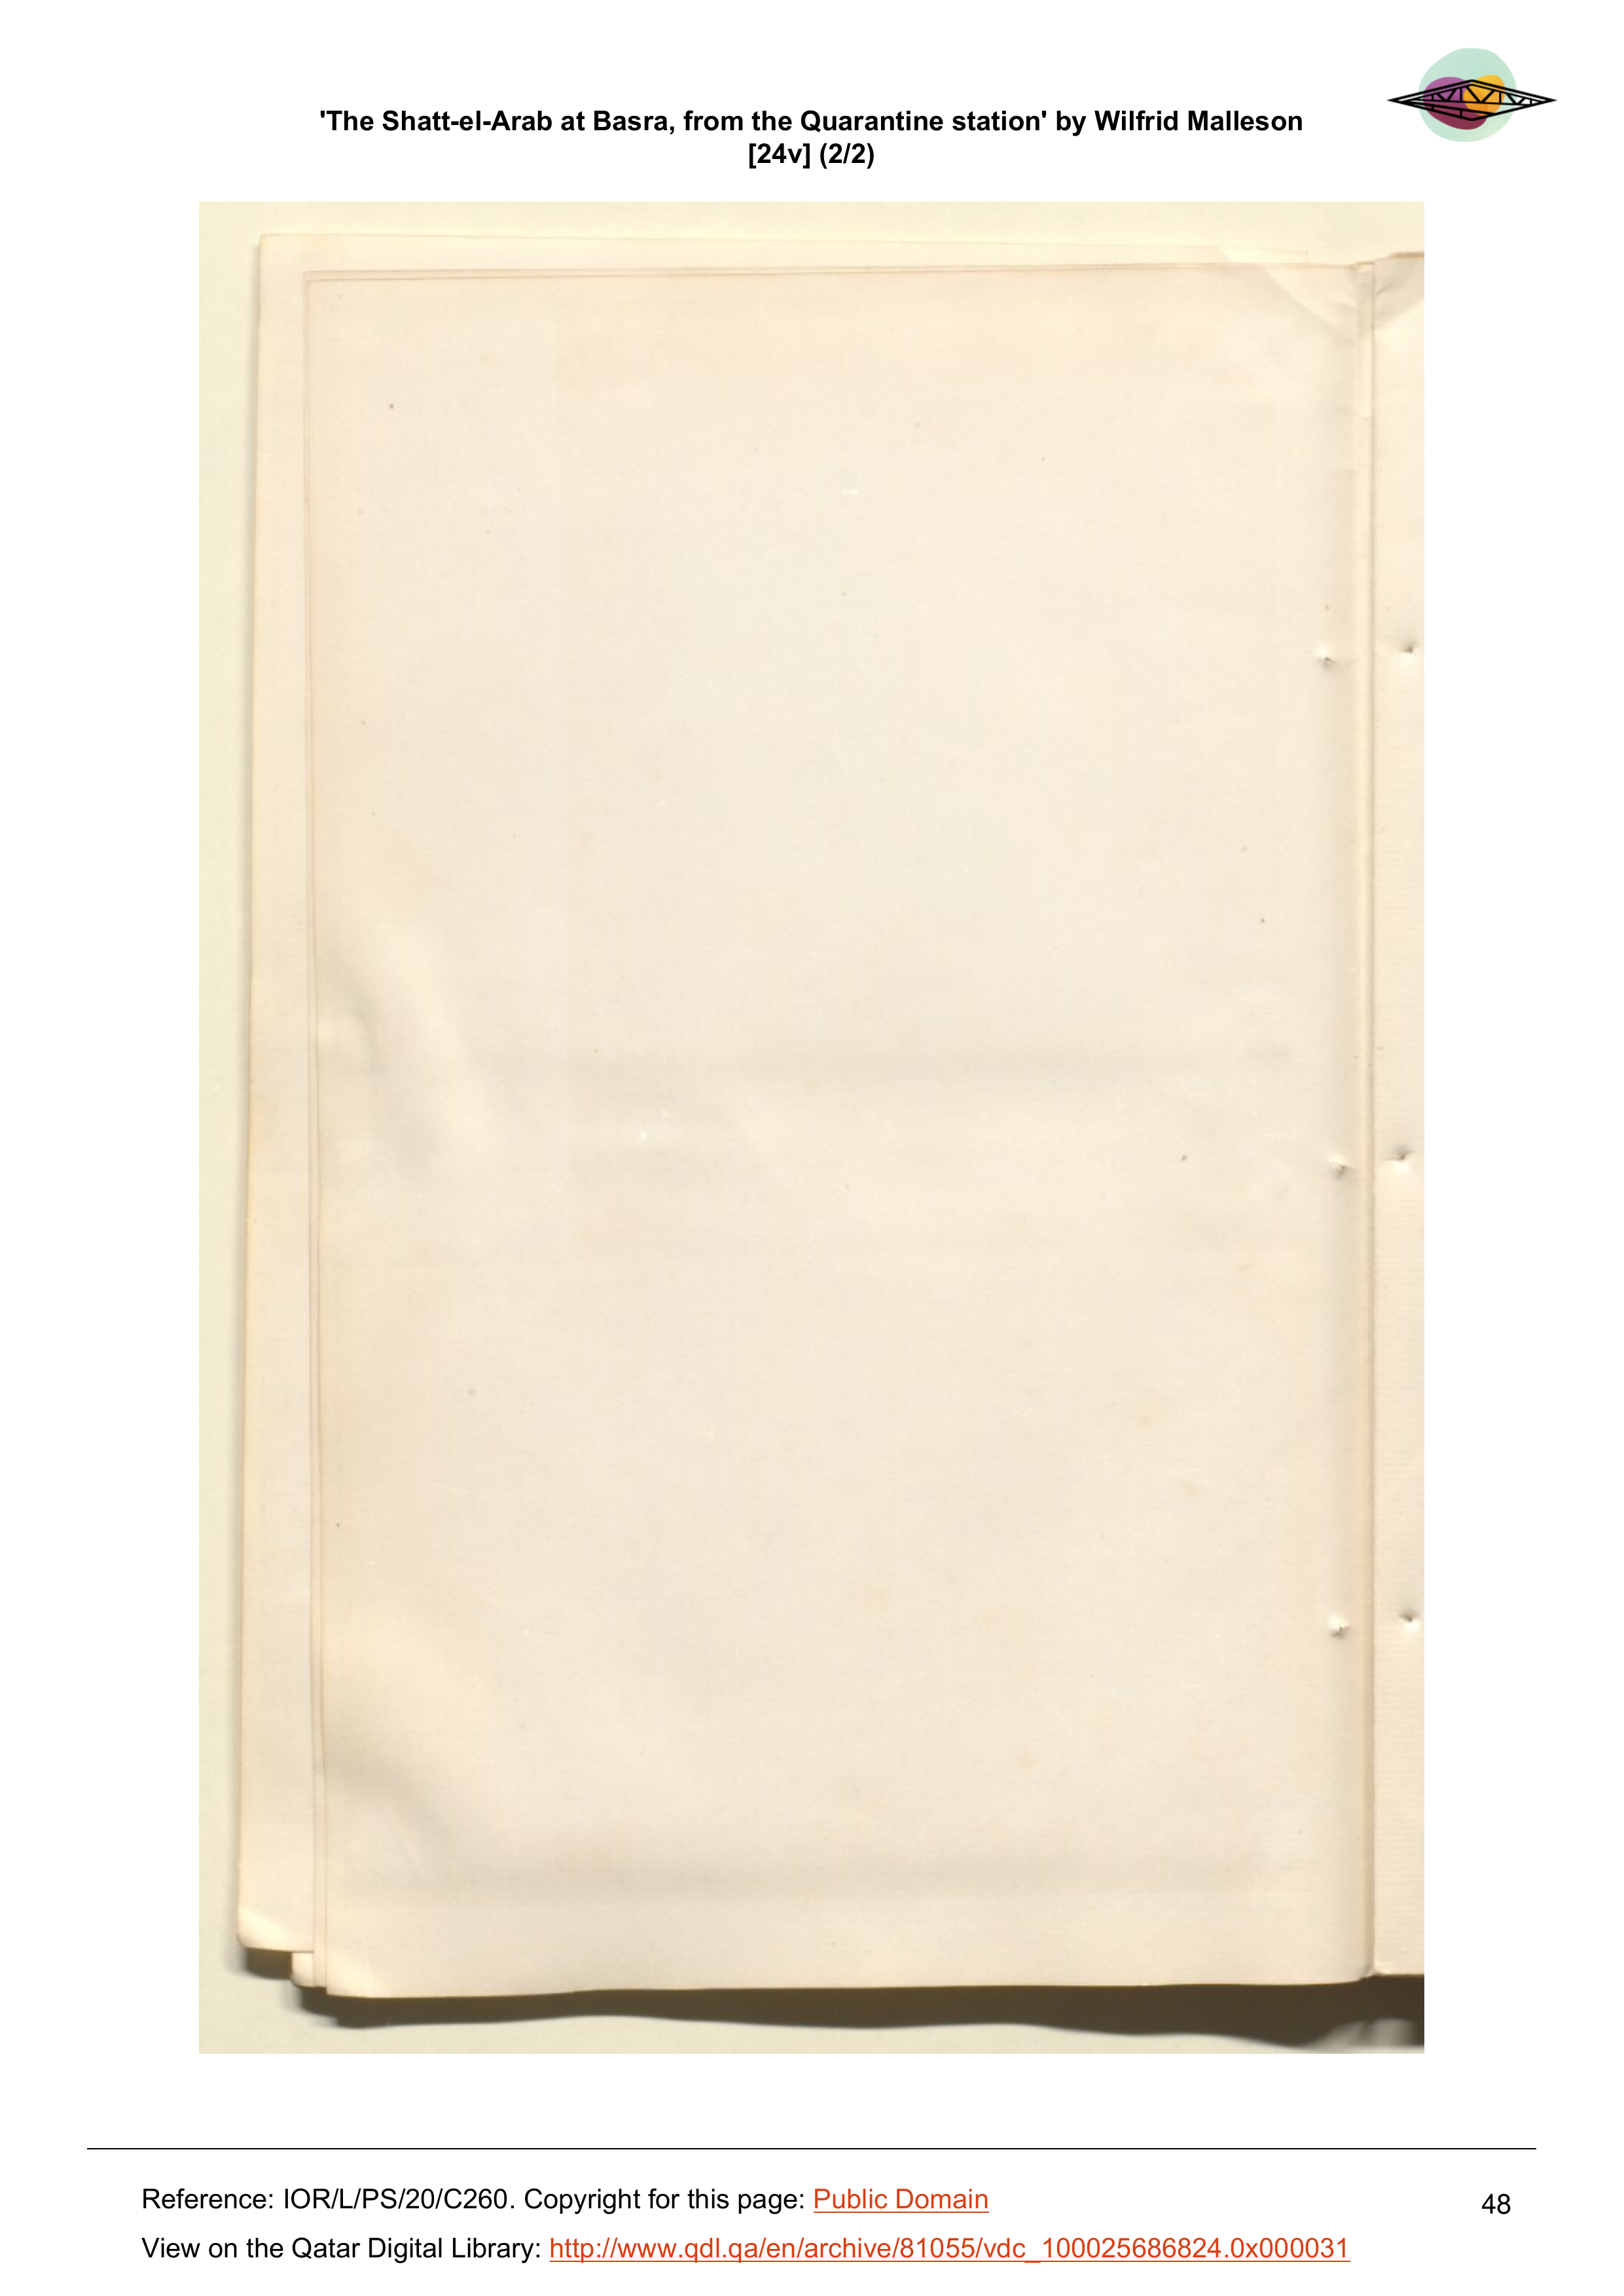 'The Shatt-el-Arab at Basra, from the Quarantine station' by Wilfrid Malleson
[24v] (2/2)
Reference: IOR/L/PS/20/C260. Copyright for this page: Public Domain
48
View on the Qatar Digital Library: http://www.qdl.qa/en/archive/81055/vdc_100025686824.0x000031